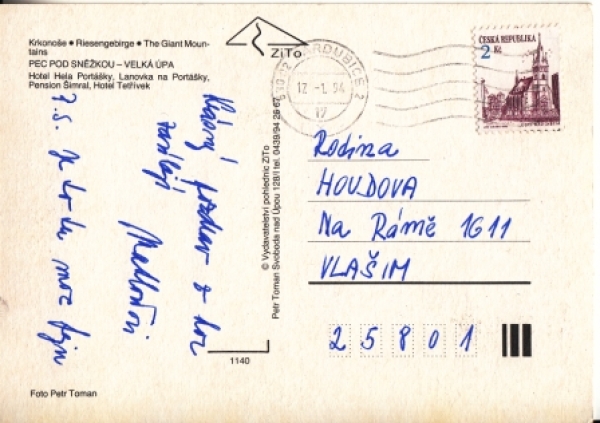 Krkonoše ● Riesengebirge ● The Giant Moun-
tains
PEC POD SNĚŽKOU – VELKÁ ÚPA
Hotel Hela Portášky, Lanovka na Portášky,
Pension Šimral, Hotel Tetřívek
ZiTo
PARDUBICE 2
530 02
17 -1. 94
17
ČESKÁ REPUBLIKA
2 Kč
Krásný pozdrav z hor
zasílají
P.S. Je to tu moc fajn
© Vydavatelství pohlednic ZiTo
Petr Toman Svoboda nad Úpou 128/I tel. 0439/94 26 67
Rodina
HOUDOVA
Na Rámě 1G11
VLAŠIM
25801
1140
Foto Petr Toman